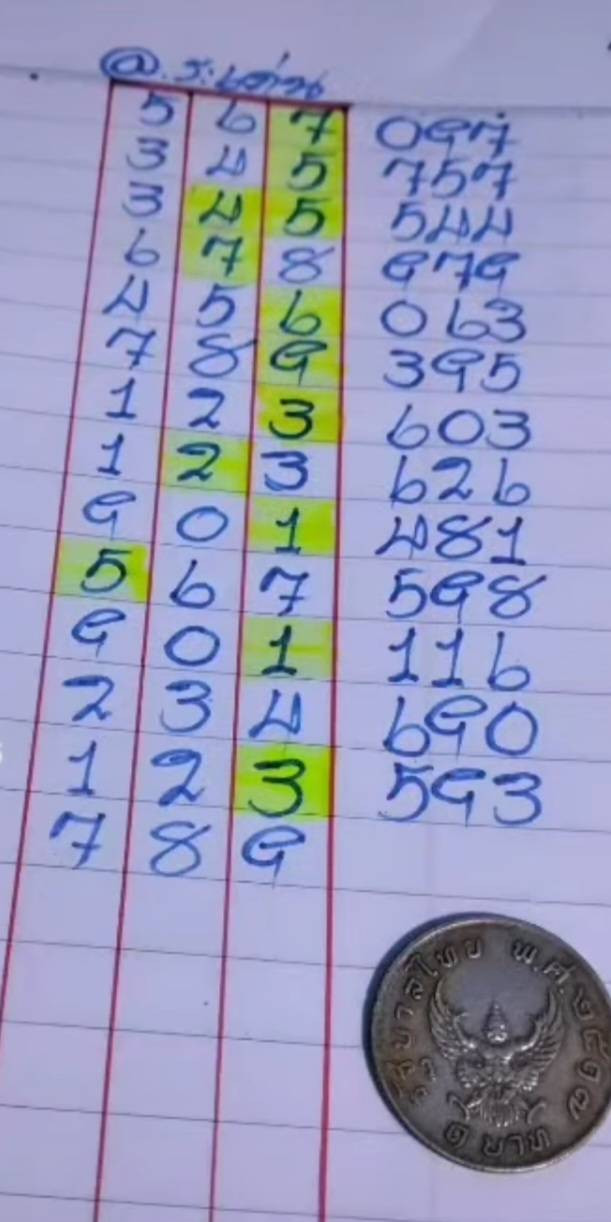 @. ร.เด่น
5 6 7 097
3 4 5 757
3 4 5 544
6 7 8 979
4 5 6 063
7 8 9 395
1 2 3 603
1 2 3 626
9 0 1 481
5 6 7 598
9 0 1 116
2 3 4 690
1 2 3 593
7 8 9
รัฐบาลไทย พ.ศ. ๒๕๑๗
๑ บาท